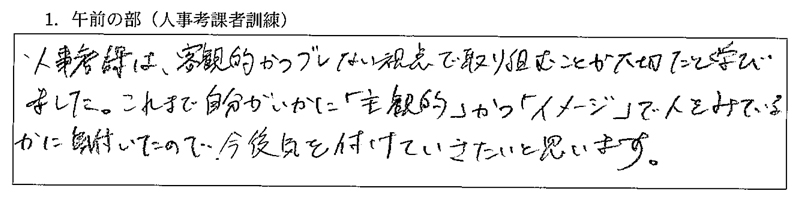 1. 午前の部（人事考課者訓練）
人事考課は、客観的かつブレない視点で取り組むことが大切だと学び
ました。これまで自分がいかに「主観的」かつ「イメージ」で人をみている
かに気付いたので、今後気を付けていきたいと思います。